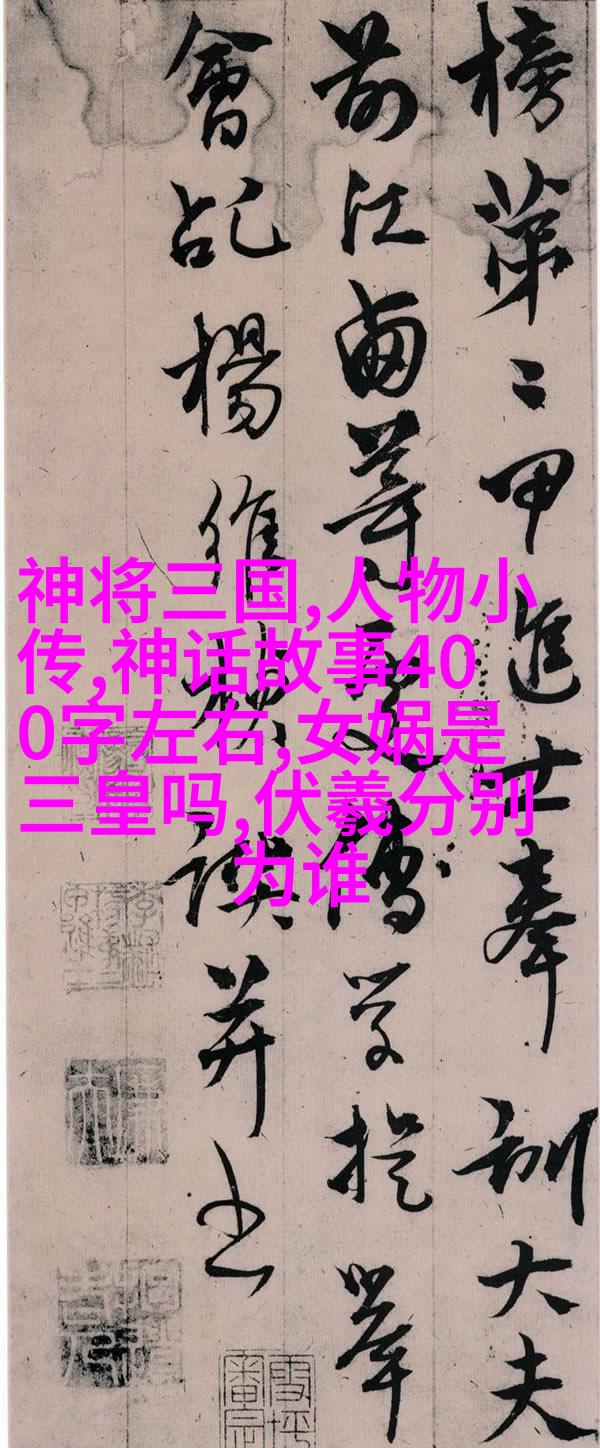 榜第二甲進士奉訓大夫
前江西等處儒學提舉
會稽楊維楨譔并書
神将三国,人物小
传,神话故事40
0字左右,女娲是
三皇吗,伏羲分别
为谁